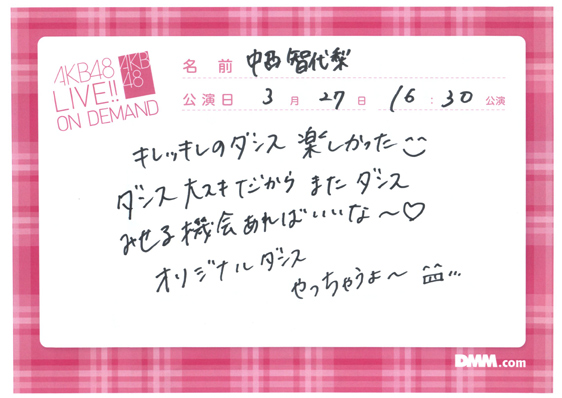 AKB48
LIVE!!
ON DEMAND
AKB
48
名前 中西智代梨
公演日 3月27日 16:30公演
キレッキレのダンス 楽しかった
ダンス大スキだから またダンス
みせる機会あればいいな〜♡
オリジナルダンス
やっちゃうよ〜
DMM.com